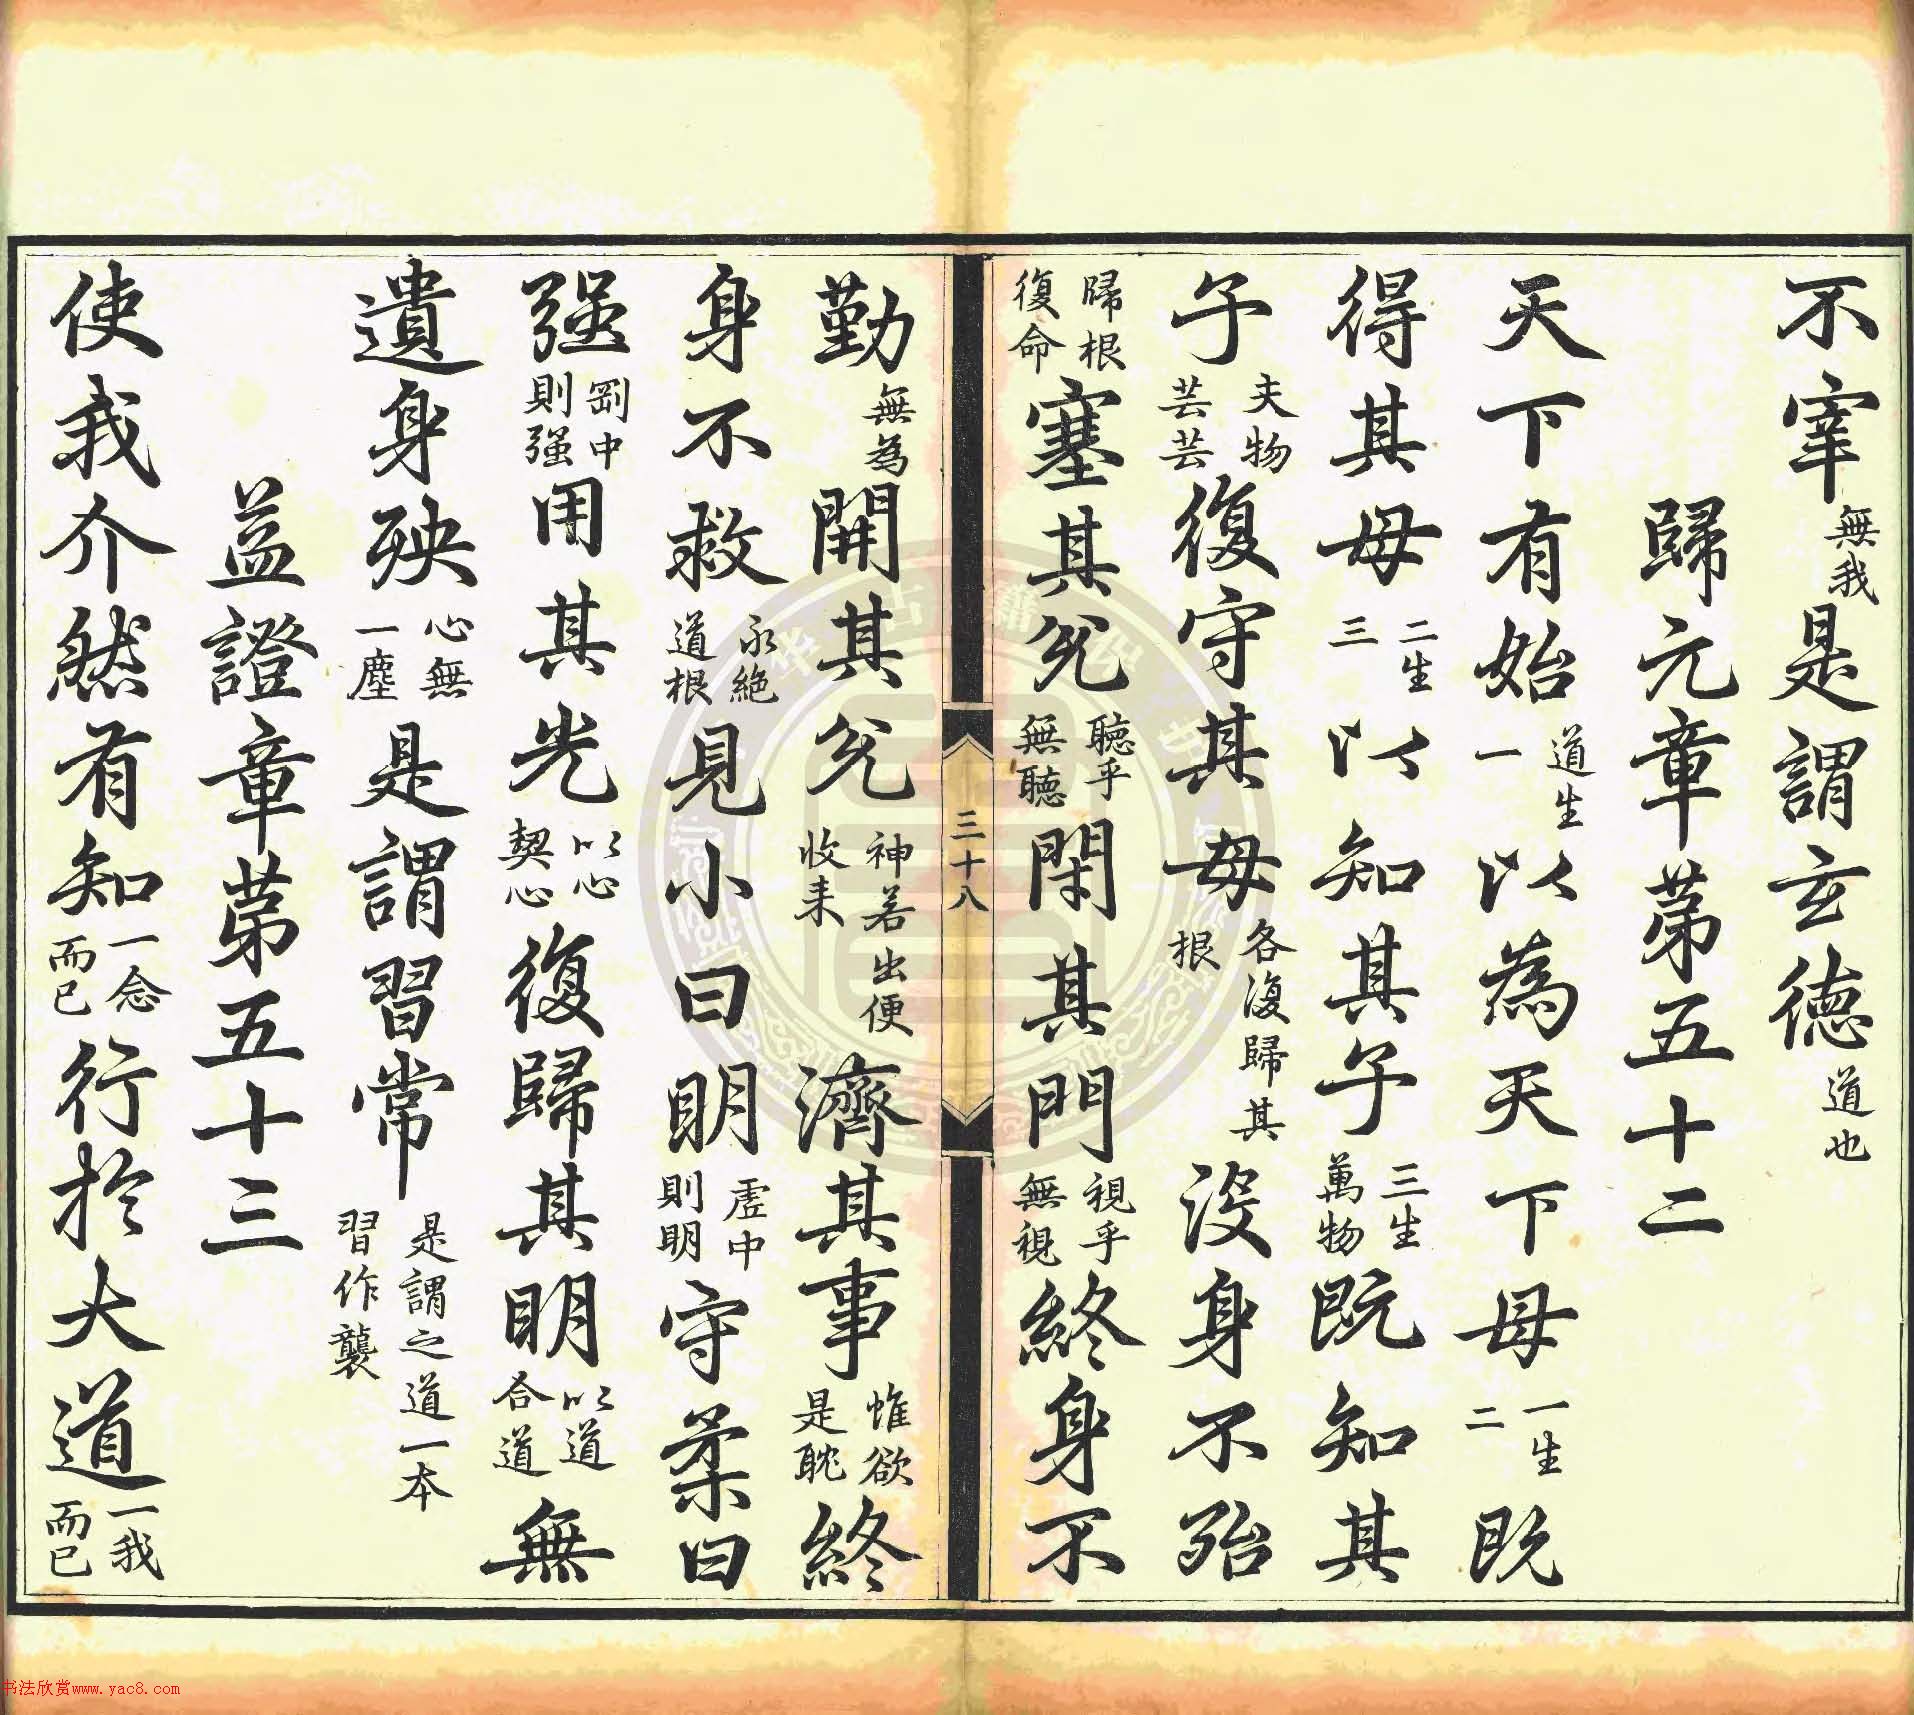 不宰無我是謂玄德道也
歸元章第五十二
天下有始道生一以為天下母一生二既
得其母二生三以知其子三生萬物既知其
子夫物芸芸復守其母各復歸其根没身不殆
歸根復命塞其兌聽乎無聽閉其門視乎無視終身不
三十八
勤無為開其兌神若出便收来濟其事惟欲是耽終
身不救永絶道根見小曰明虛中則明守柔曰
强剛中則强用其光以心契心復歸其明以道合道無
遺身殃心無一塵是謂習常是謂之道一本習作襲
益證章第五十三
使我介然有知一念而已行於大道一我而已
书法欣赏www.yac8.com